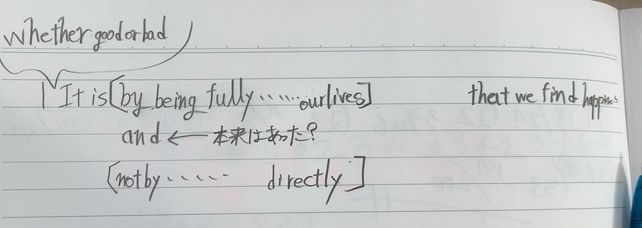 Whether good or bad
It is [by being fully ...... our lives] that we find happiness
and ← 本来はあった?
[not by ..... directly]